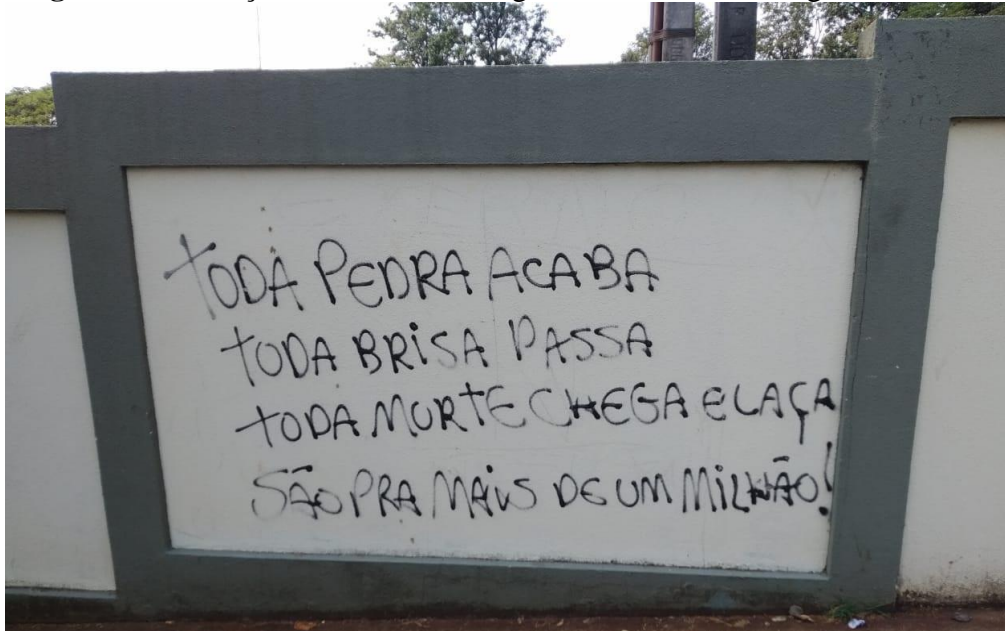 TODA PEDRA ACABA
TODA BRISA PASSA
TODA MORTE CHEGA E LAÇA
SÃO PRA MAIS DE UM MILHÃO!